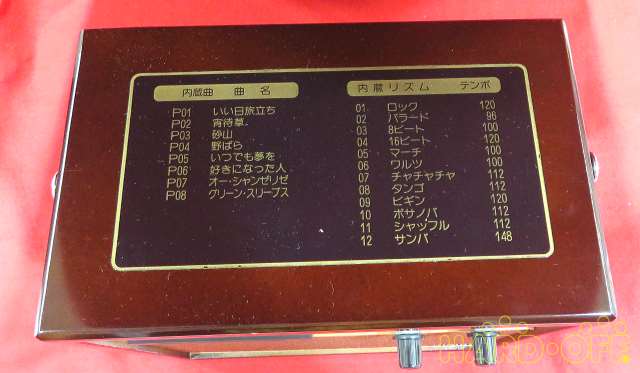 内蔵曲 曲名
P01 いい日旅立ち
P02 宵待草
P03 砂山
P04 野ばら
P05 いつでも夢を
P06 好きになった人
P07 オー・シャンゼリゼ
P08 グリーン・スリーブス
内蔵リズム テンポ
01 ロック 120
02 バラード 96
03 8ビート 100
04 16ビート 120
05 マーチ 100
06 ワルツ 100
07 チャチャチャ 112
08 タンゴ 112
09 ビギン 120
10 ボサノバ 112
11 シャッフル 112
12 サンバ 148
HARD・OFF